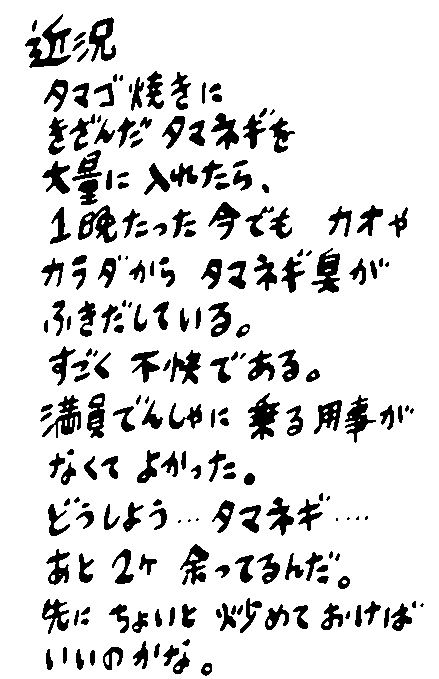 近況
タマゴ焼きに
きざんだ タマネギを
大量に 入れたら、
1晩たった今でも カオや
カラダから タマネギ臭が
ふきだしている。
すごく 不快である。
満員でんしゃに 乗る用事が
なくて よかった。
どうしよう… タマネギ‥‥
あと 2ケ 余ってるんだ。
先に ちょいと 炒めておけば
いいのかな。